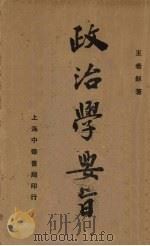 王希和著
政治學要旨
上海中華書局印行